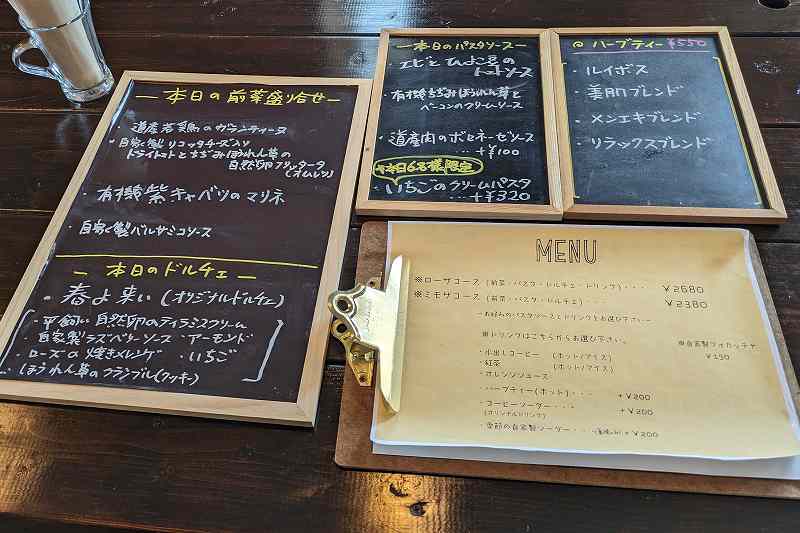 本日の前菜盛り合せ
・道産若鶏のガランティーヌ
・自家製リコッタチーズ入り
ドライトマトとちぢみほうれん草の
自然卵フリッタータ
(オムレツ)
・有機紫キャベツのマリネ
・自家製バルサミコソース
本日のドルチェ
・春よ来い(オリジナルドルチェ)
・平飼い自然卵のティラミスクリーム
・自家製ラズベリーソース・アーモンド
・ローズの焼きメレンゲ・いちご
・ほうれん草のクランブル(クッキー)
本日のパスタソース
・エビとひよこ豆の
トマトソース
・有機ちぢみほうれん草と
ベーコンのクリームソース
・道産肉のボロネーゼソース
・・・+¥100
本日6名様限定
・いちごのクリームパスタ
・・・+¥320
@ ハーブティー ¥550
・ルイボス
・美肌ブレンド
・メンエキブレンド
・リラックスブレンド
MENU
※ローザコース (前菜・パスタ・ドルチェ・ドリンク)・・・ ¥2680
※ミモザコース (前菜・パスタ・ドルチェ)・・・ ¥2380
ーお好みのパスタソースとドリンクをお選び下さいー
※ドリンクはこちらからお選び下さい。
※自家製フォカッチャ
¥150
・水出しコーヒー (ホット/アイス)
・紅茶 (ホット/アイス)
・オレンジジュース
・ハーブティー(ホット)・・・ +¥200
・コーヒーソーダー・・・ +¥200
(オリジナルドリンク)
・季節の自家製ソーダー・・・ +¥200